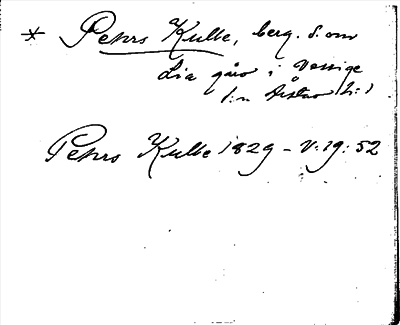 * Pehrs Kulle, berg. S. om
Lia går i Vessige
s:n
Pehrs Kulle 1829 - V: 19: 52